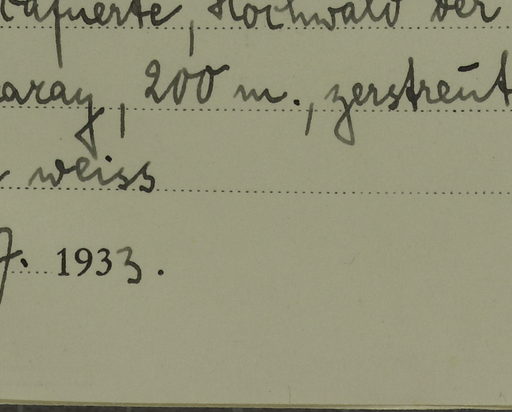 Hochwald der
aray, 200 m., zerstreut
weiss
7. 1933.